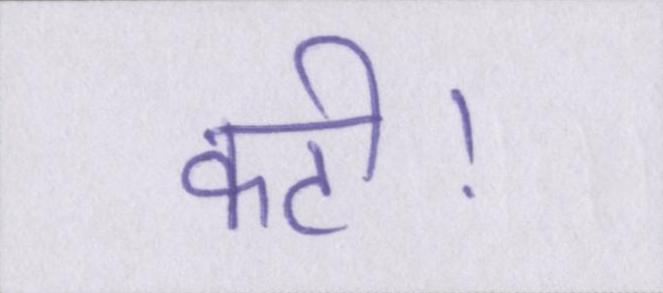 कटी!